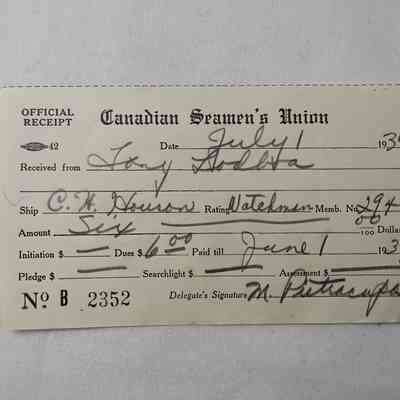 OFFICIAL RECEIPT Canadian Seamen's Union
42 Date July 1 193
Received from Tony
Ship C. W. Rating Watchman Memb. No 294
Amount Six 00/100 Dolla
Initiation $ — Dues $ 6.00 Paid till June 1 193
Pledge $ — Searchlight $ — Assessment $ —
No B 2352 Delegate's Signature M.